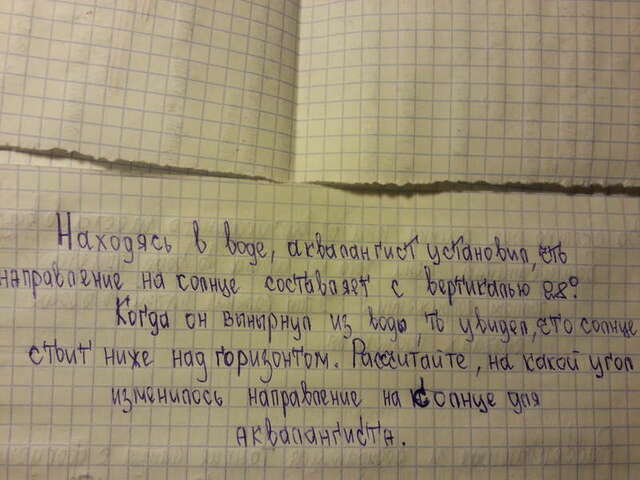 Находясь в воде, аквалангист установил, что
направление на солнце составляет с вертикалью 28°
Когда он вынырнул из воды, то увидел, что солнце
стоит ниже над горизонтом. Рассчитайте, на какой угол
изменилось направление на Солнце для
аквалангиста.